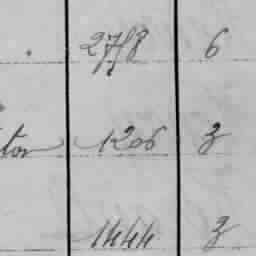 2778 6
tor 1206 3
1444 3